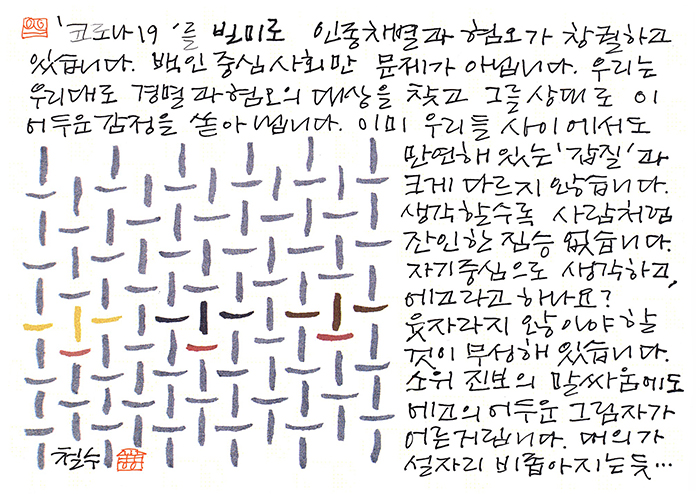 '코로나19'를 빌미로 인종차별과 혐오가 창궐하고
있습니다. 백인중심사회만 문제가 아닙니다. 우리는
우리대로 경멸과 혐오의 대상을 찾고 그를 상대로 이
어두운 감정을 쏟아냅니다. 이미 우리들 사이에서도
만연해 있는 '갑질'과
크게 다르지 않습니다.
생각할수록 사람처럼
잔인한 짐승 없습니다.
자기중심으로 생각하고,
에고라고 하나요?
웃자라지 않아야 할
것이 무성해 있습니다.
소위 진보의 말싸움에도
에고의 어두운 그림자가
어른거립니다. 대의가
설자리 비좁아지는 듯…
철수